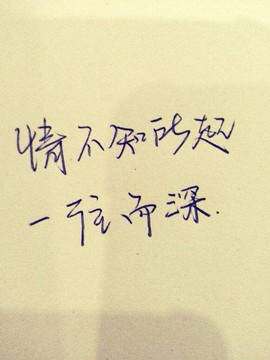 情不知所起
一往而深.